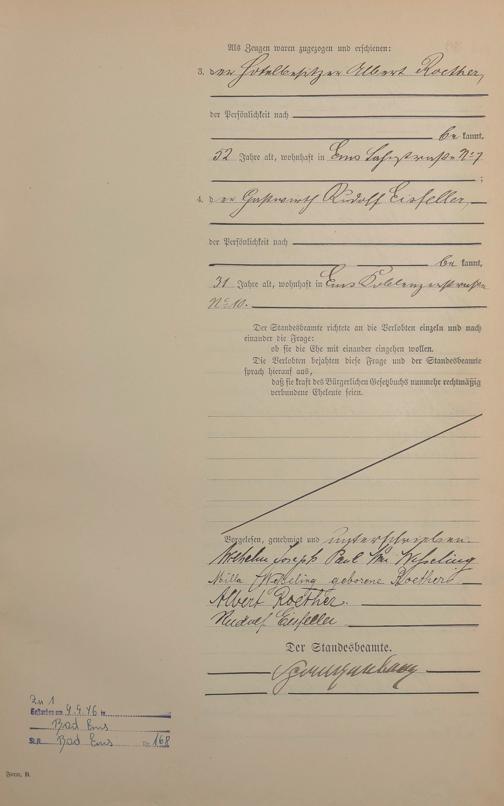 Als Zeugen waren zugezogen und erschienen:
3. der Hotelbesitzer Albert Roether,
der Persönlichkeit nach
be kannt,
52 Jahre alt, wohnhaft in Ems Lahnstraße No 7
;
4. der Gastwirth Rudolf Eisfeller,
der Persönlichkeit nach
be kannt,
31 Jahre alt, wohnhaft in Ems Koblenzerstraße
No 10.
Der Standesbeamte richtete an die Verlobten einzeln und nach
einander die Frage:
ob sie die Ehe mit einander eingehen wollen.
Die Verlobten bejahten diese Frage und der Standesbeamte
sprach hierauf aus,
daß sie kraft des Bürgerlichen Gesetzbuchs nunmehr rechtmäßig
verbundene Eheleute seien.
Vorgelesen, genehmigt und unterschrieben.
Wilhelm Joseph Paul Wesseling
Milla Wesseling geborene Roether
Albert Roether.
Rudolf Eisfeller
Der Standesbeamte.
Zu 1
Gestorben am 4.4.46 in
Bad Ems
St.A. Bad Ems Nr. 168
Form. B.